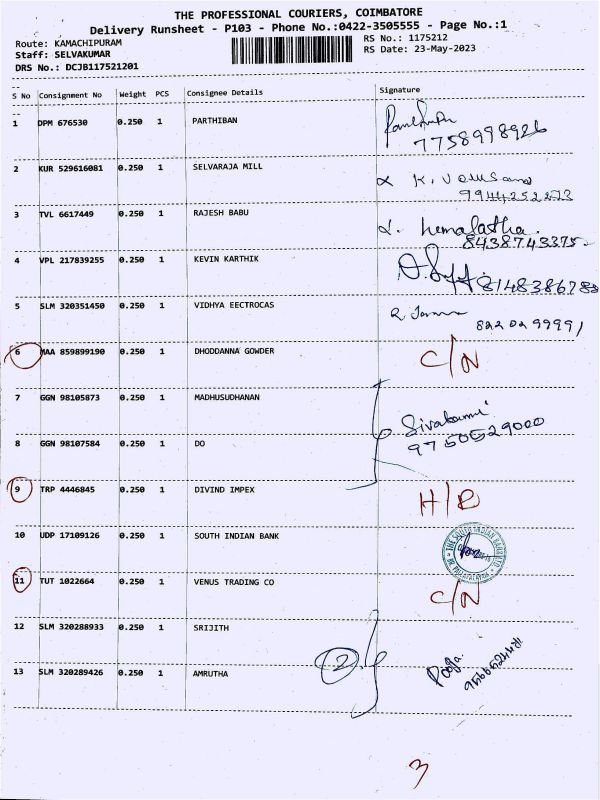 THE PROFESSIONAL COURIERS, COIMBATORE
Delivery Runsheet - P103 - Phone No.:0422-3505555 - Page No.:1
Route: KAMACHIPURAM
Staff: SELVAKUMAR
DRS No.: DCJB117521201
RS No.: 1175212
RS Date: 23-May-2023
S No Consignment No Weight PCS Consignee Details Signature
1 DPM 676530 0.250 1 PARTHIBAN
7758998926
2 KUR 529616081 0.250 1 SELVARAJA MILL
K.
9944252273
3 TVL 6617449 0.250 1 RAJESH BABU
hemalatha.
8438743375
4 VPL 217839255 0.250 1 KEVIN KARTHIK
8148386788
5 SLM 320351450 0.250 1 VIDHYA EECTROCAS
82202 99991
6 MAA 859899190 0.250 1 DHODDANNA GOWDER C/N
7 GGN 98105873 0.250 1 MADHUSUDHANAN
Sivakami
9750529000
8 GGN 98107584 0.250 1 DO
9 TRP 4446845 0.250 1 DIVIND IMPEX H/D
10 UDP 17109126 0.250 1 SOUTH INDIAN BANK
THE SOUTH INDIAN BANK LTD.
11 TUT 1022664 0.250 1 VENUS TRADING CO C/N
12 SLM 320288933 0.250 1 SRIJITH
2
Pooja
13 SLM 320289426 0.250 1 AMRUTHA
3